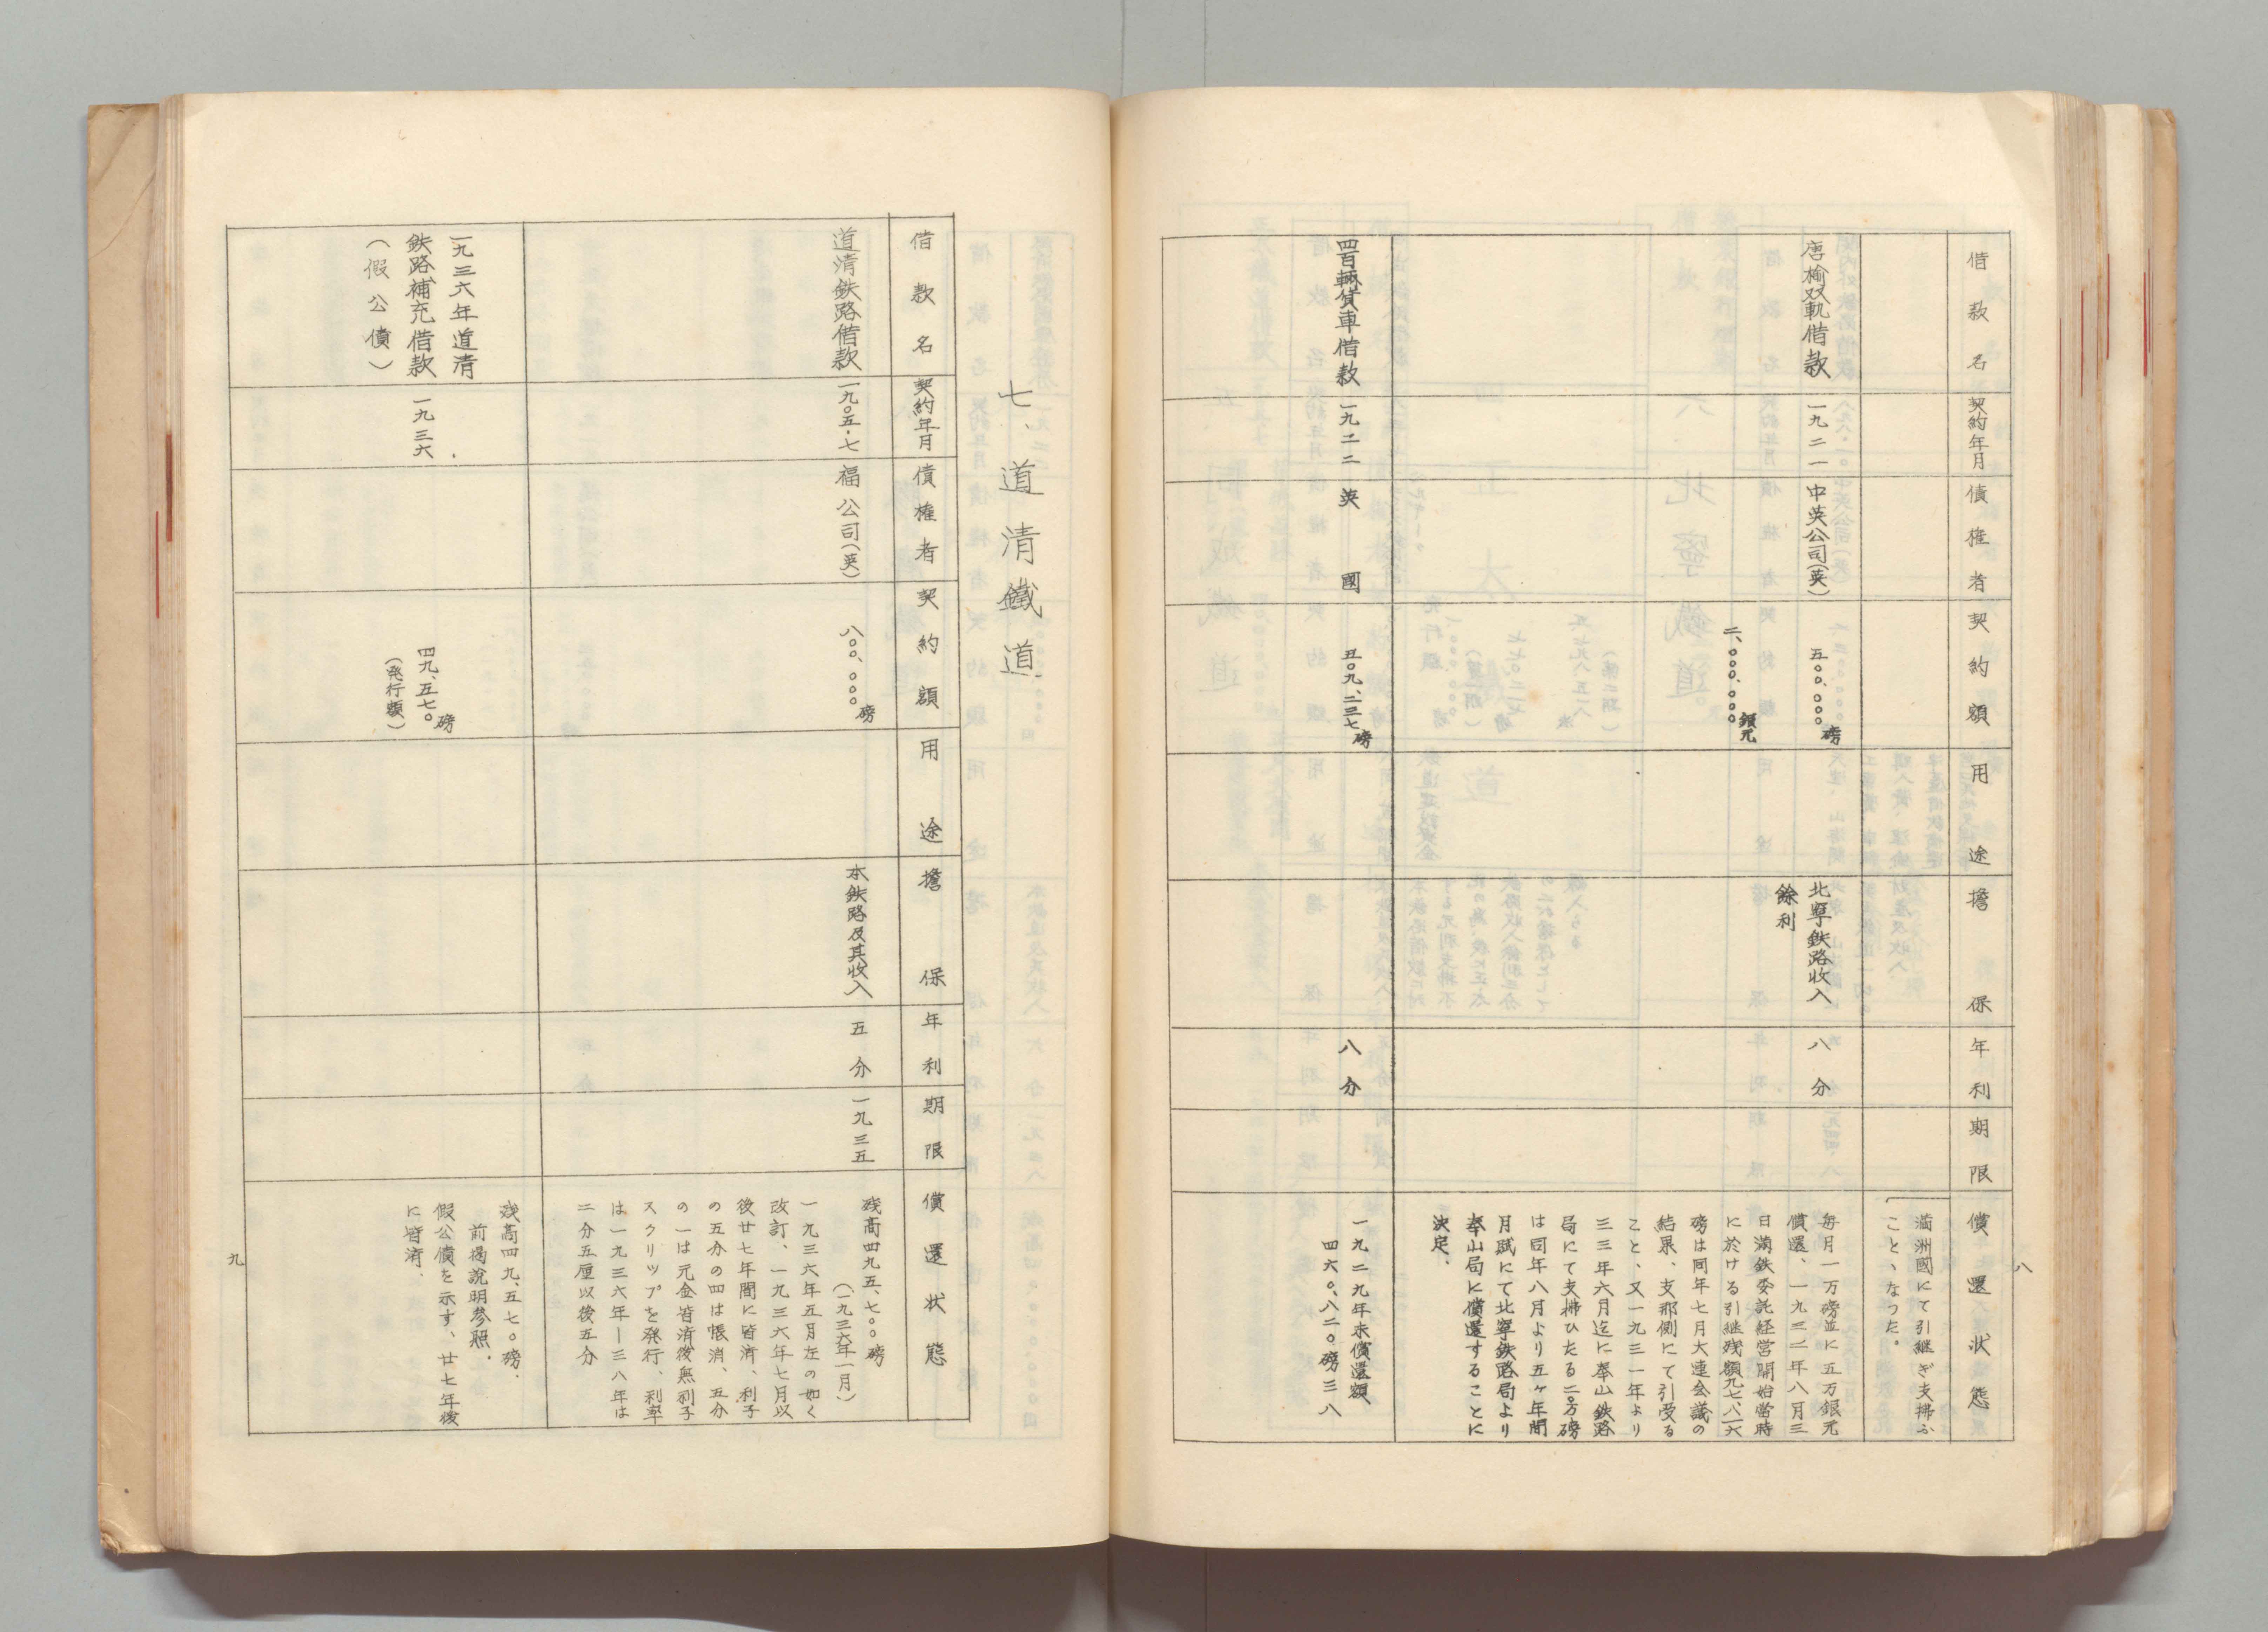 八
借款名
契約年月
債権者
契約額
用途
擔保
年利
期限
償還状態
満洲國にて引継ぎ支拂ふ
ことゝなつた。
唐楡双軌借款
一九二一
中英公司(英)
五〇〇、〇〇〇磅
二、〇〇〇、〇〇〇銀元
北寧鉄路收入
餘利
八分
毎月一万磅並に五万銀元
償還、一九三二年八月三
日満鉄委託経営開始当時
に於ける引継残額九七、八一六
磅は同年七月大連会議の
結果、支那側にて引受る
こと、又一九三一年より
三三年六月迄に奉山鉄路
局にて支拂ひたる二〇万磅
は同年八月より五ヶ年間
月賦にて北寧鉄路局より
奉山局に償還することに
決定.
四百輛貨車借款
一九二二
英國
五〇九、二三七磅
八分
一九二九年末償還額
四六〇、八二〇磅三八
七、道清鐵道
借款名
契約年月
債権者
契約額
用途
擔保
年利
期限
償還状態
道清鉄路借款
一九〇五・七
福公司(英)
八〇〇、〇〇〇磅
本鉄路及其收入
五分
一九三五
残高四九五、七〇〇磅
(一九三六年一月)
一九三六年五月左の如く
改訂、一九三六年七月以
後廿七年間に皆済、利子
の五分の四は帳消、五分
の一は元金皆済後無利子
スクリップを発行、利率
は一九三六年—三八年は
二分五厘以後五分
一九三六年道清
鉄路補充借款
(假公債)
一九三六
四九、五七〇磅
(発行額)
残高四九、五七〇磅.
前掲説明参照.
假公債を示す、廿七年後
に皆済.
九